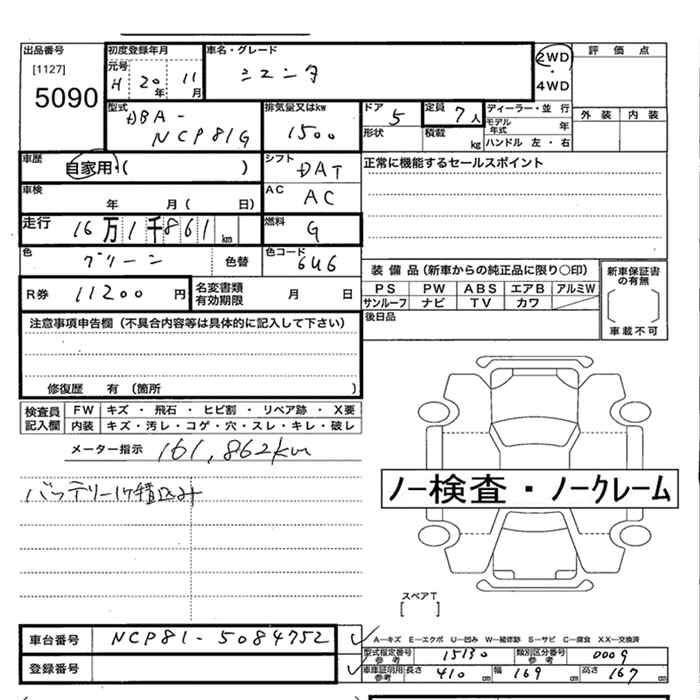 出品番号 初度登録年月 車名・グレード 2WD 評価点
[1127] 元号 H 20年 11月 シエンタ ・
5090 4WD
型式 DBA- NCP81G 排気量又はkw 1500 ドア 5 定員 7人 ディーラー・並行 外装 内装
形状 積載 kg モデル年式 年
ハンドル 左・右
車歴 自家用・( ) シフト DAT 正常に機能するセールスポイント
車検 年 月( 日) AC AC
走行 16万1千861km 燃料 G
色 グリーン 色替 色コード 6U6
装備品(新車からの純正品に限り○印) 新車保証書の有無
R券 11200円 名変書類有効期限 月 日 PS PW ABS エアB アルミW
サンルーフ ナビ TV カワ
車載不可
注意事項申告欄(不具合内容等は具体的に記入して下さい) 後日品
修復歴 有(箇所 )
検査員記入欄 FW キズ・飛石・ヒビ割・リペア跡・X要
内装 キズ・汚レ・コゲ・穴・スレ・キレ・破レ
メーター指示 161,862km
バッテリー積込み
ノー検査・ノークレーム
スペアT
[ ]
車台番号 NCP81-5084752
A―キズ E―エクボ U―凹み W―補修跡 S―サビ C―腐食 XX―交換済
型式指定番号参考 15130 類別区分番号参考 0009
登録番号 車庫証明用参考 長さ 410cm 幅 169cm 高さ 167cm